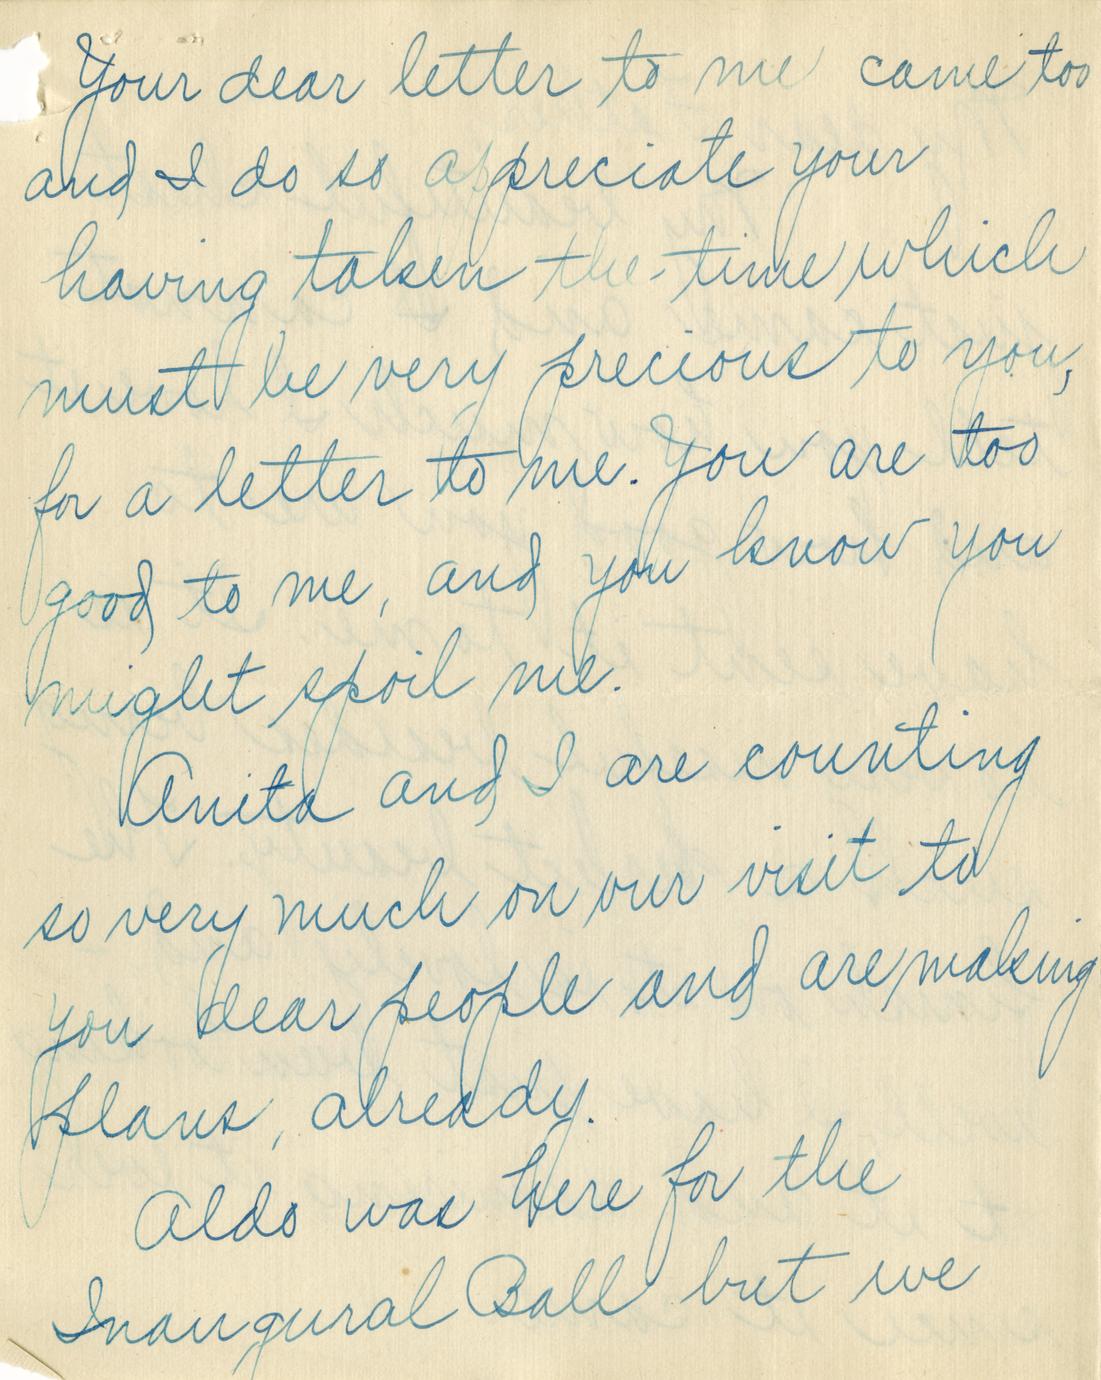 Your dear letter to me came too
and I do so appreciate your
having taken the time which
must be very precious to you,
for a letter to me. You are too
good to me, and you know you
might spoil me.
Anita and I are counting
so very much on our visit to
you dear people and are making
plans, already.
Aldo was here for the
Inaugural Ball but we